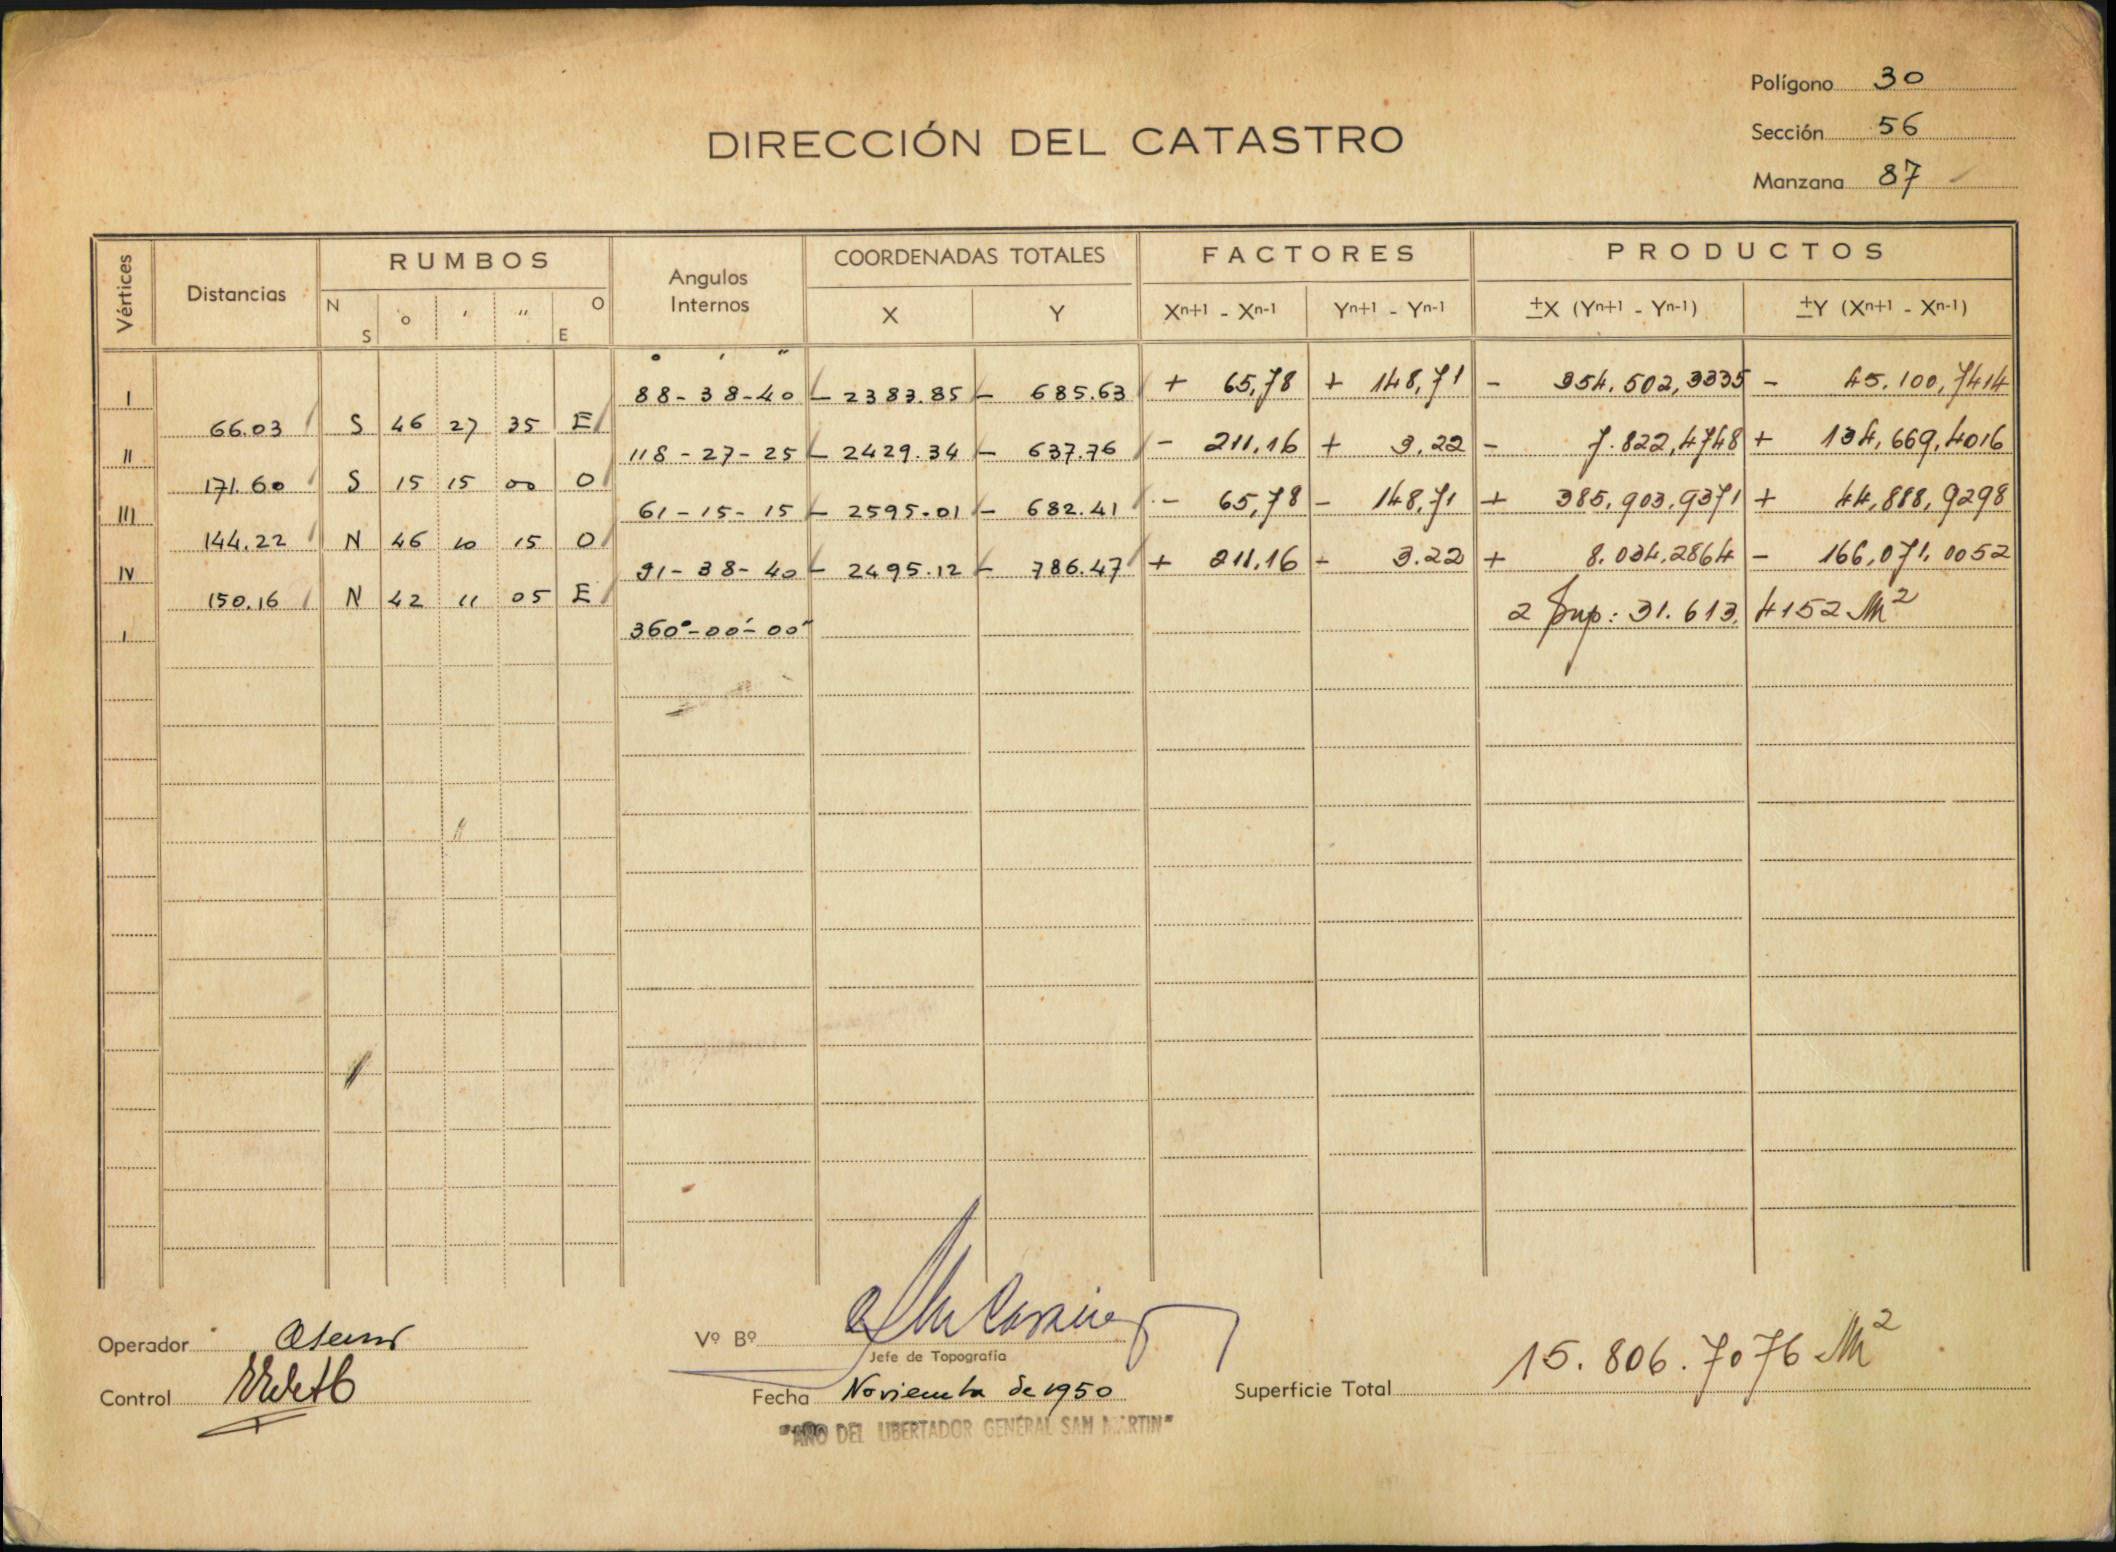 Polígono 30
Sección 56
Manzana 87
DIRECCIÓN DEL CATASTRO
Vértices Distancias RUMBOS Angulos Internos COORDENADAS TOTALES FACTORES PRODUCTOS
N S ° ' " O E X Y Xn+1 - Xn-1 Yn+1 - Yn-1 ±X (Yn+1 - Yn-1) ±Y (Xn+1 - Xn-1)
° ' "
I 88-38-40 - 2383.85 - 685.63 + 65,78 + 148,71 - 354.502,3335 - 45.100,7414
66.03 S 46 27 35 E
II 118-27-25 - 2429.34 - 637.76 - 211.16 + 3.22 - 7.822,4748 + 134,669,4016
171.60 S 15 15 00 O
III 61-15-15 - 2595.01 - 682.41 - 65,78 - 148,71 + 385,903,9371 + 44,888,9298
144.22 N 46 10 15 O
IV 91-38-40 - 2495.12 - 786.47 + 211.16 - 3.22 + 8.034.2864 - 166,071,0052
150.16 N 42 11 05 E
I 360°-00'-00" 2 Sup: 31.613,4152 M²
Operador
Vº Bº
Jefe de Topografía
Control
Fecha Noviembre de 1950
Superficie Total 15.806.7076 M²
"AÑO DEL LIBERTADOR GENERAL SAN MARTIN"